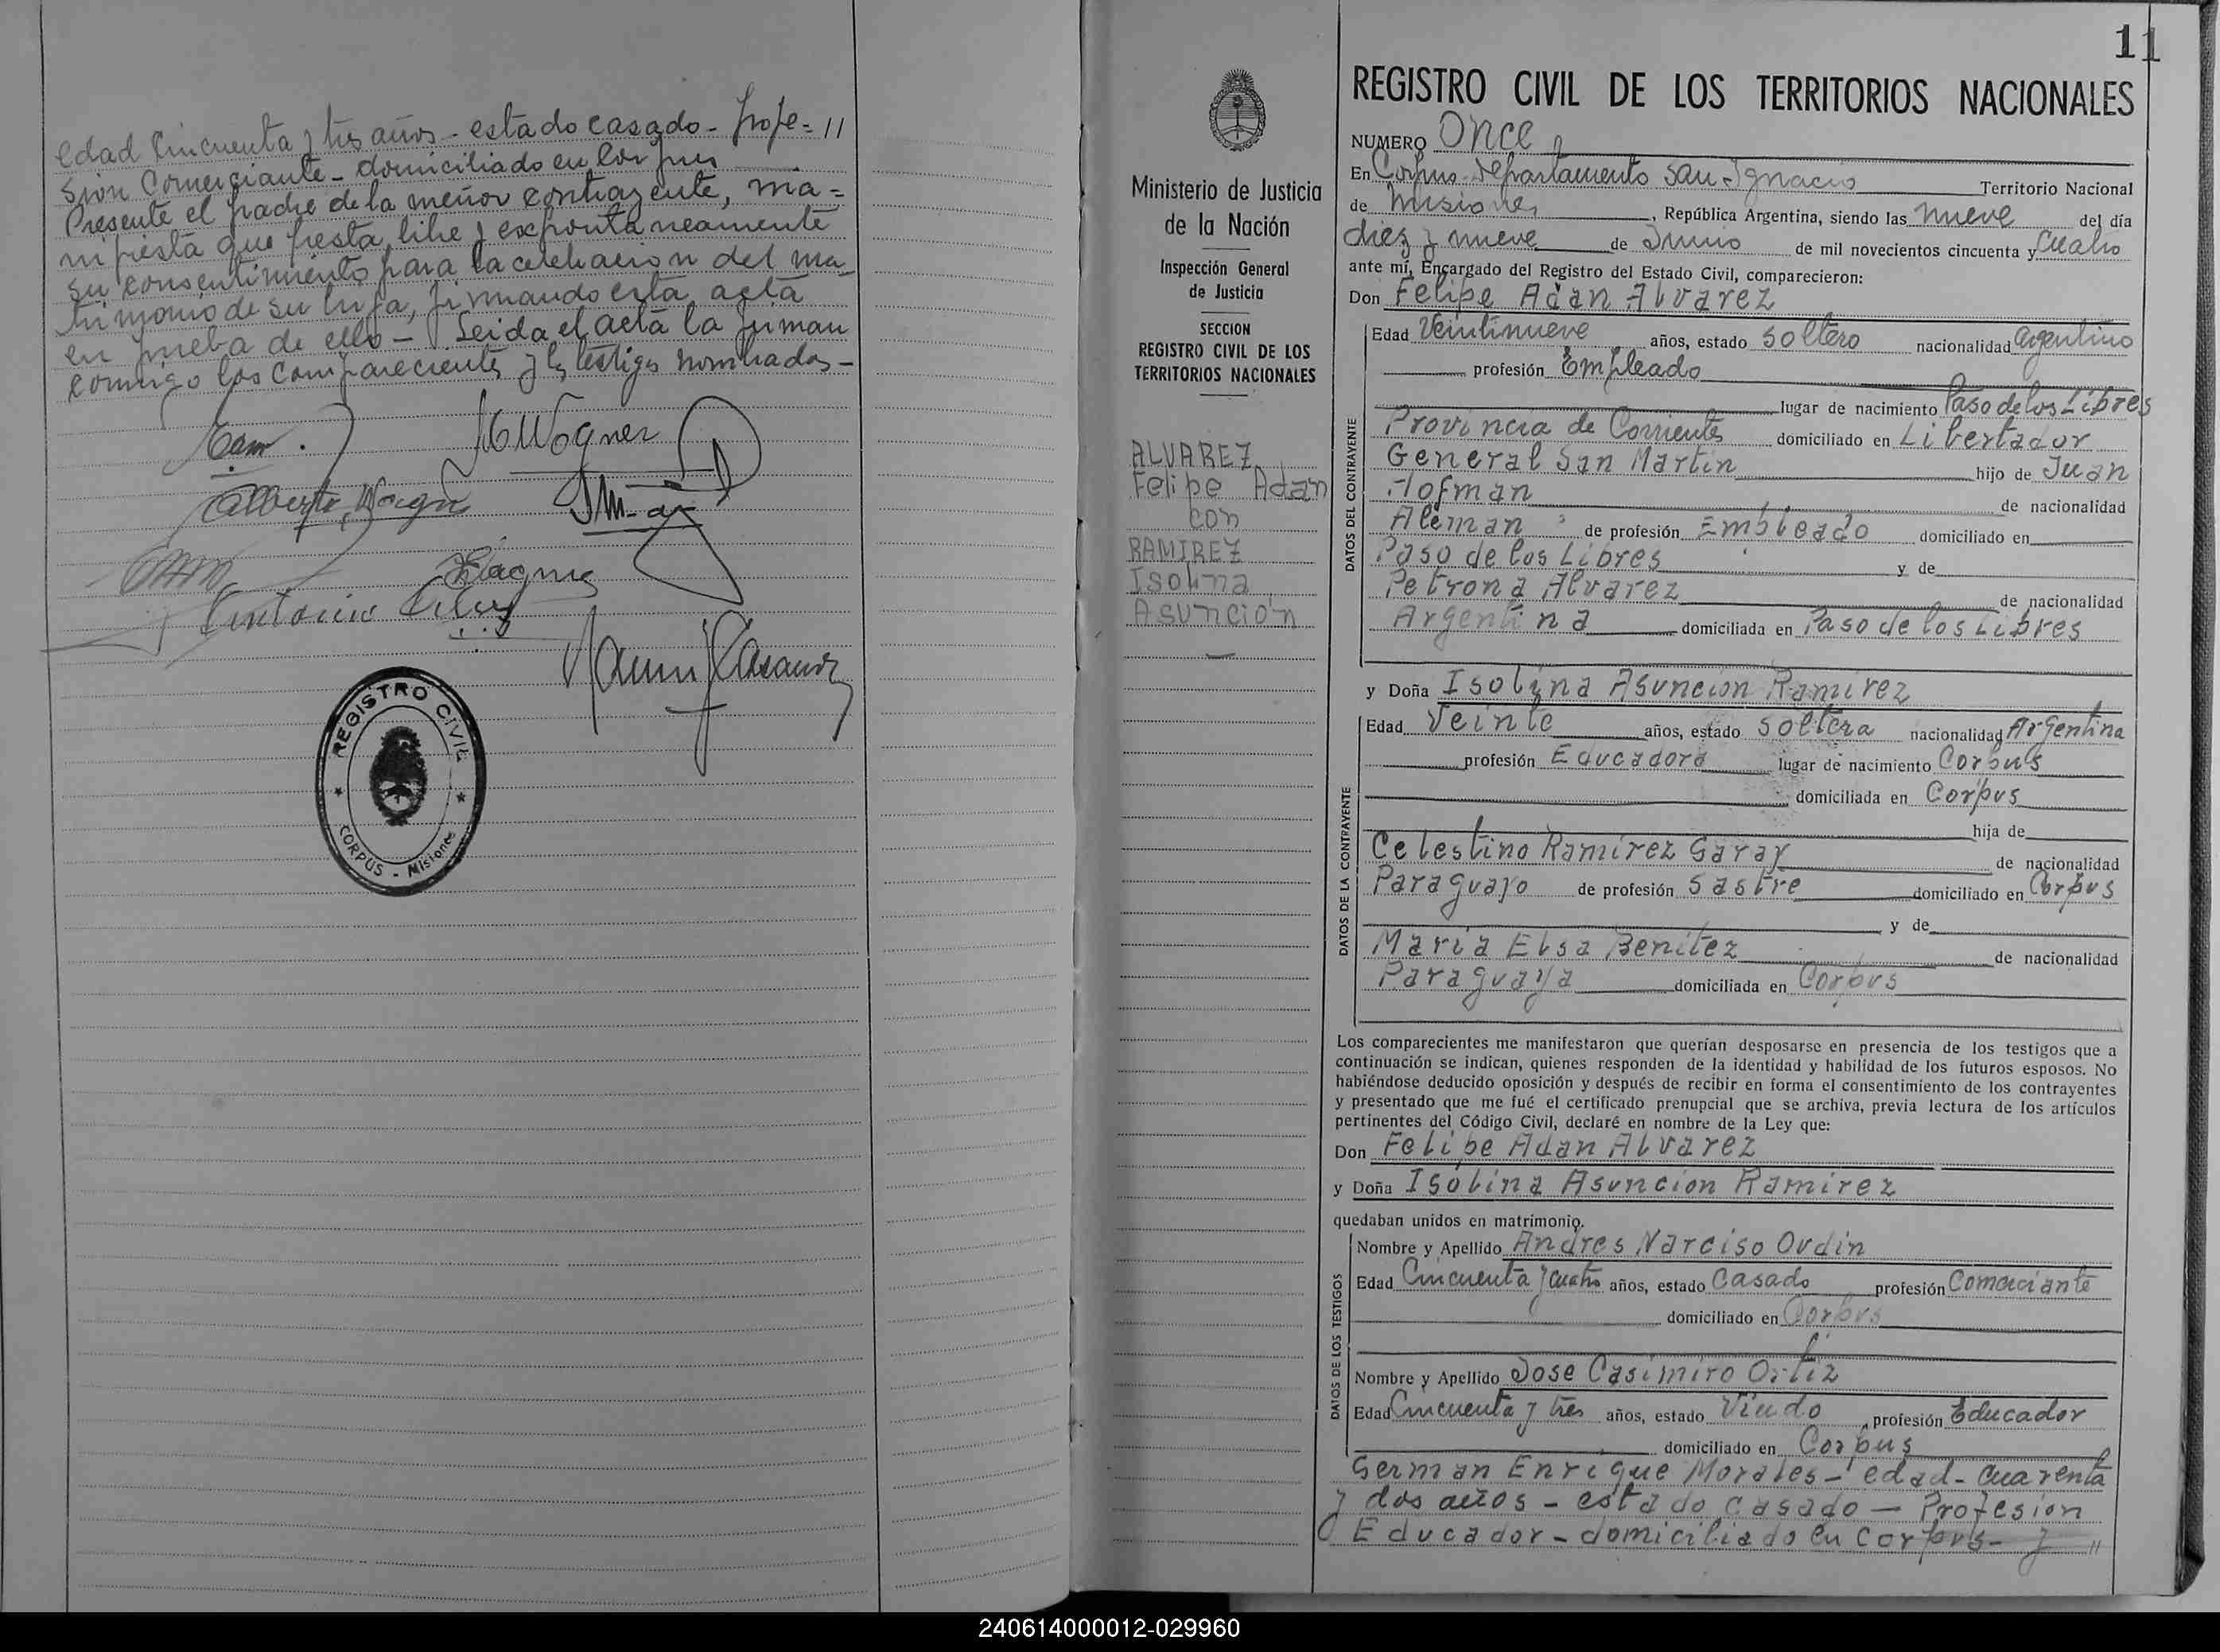 edad cincuenta y tres años - estado casado - Profe= 11
sión Comerciante - domiciliado en Corpus
Presente el padre de la menor contrayente, ma=
nifiesta que presta libre y expontaneamente
su consentimiento para la celebración del ma
trimonio de su hija, firmando esta acta
en prueba de ello - Leida el acta la firman
conmigo los comparecientes y los testigos nombrados -
Wagner
Alberto Wagner
Antonio
REGISTRO CIVIL
CORPUS - Misiones
11
Ministerio de Justicia
de la Nación
Inspección General
de Justicia
SECCION
REGISTRO CIVIL DE LOS
TERRITORIOS NACIONALES
ALVAREZ
Felipe Adan
con
RAMIREZ
Isolina
Asunción
REGISTRO CIVIL DE LOS TERRITORIOS NACIONALES
NUMERO Once
En Corpus Departamento San Ignacio Territorio Nacional
de Misiones, República Argentina, siendo las nueve del día
diez y nueve de Junio de mil novecientos cincuenta y Cuatro
ante mí, Encargado del Registro del Estado Civil, comparecieron:
Don Felipe Adan Alvarez
DATOS DEL CONTRAYENTE
Edad Veintinueve años, estado soltero nacionalidad argentino
profesión Empleado
lugar de nacimiento Paso de los Libres
Provincia de Corrientes domiciliado en Libertador
General San Martin hijo de Juan
Hofman de nacionalidad
Aleman de profesión Empleado domiciliado en
Paso de los Libres y de
Petrona Alvarez de nacionalidad
Argentina domiciliada en Paso de los Libres
y Doña Isolina Asuncion Ramirez
DATOS DE LA CONTRAYENTE
Edad Veinte años, estado soltera nacionalidad Argentina
profesión Educadora lugar de nacimiento Corpus
domiciliada en Corpus
hija de
Celestino Ramirez Garay de nacionalidad
Paraguayo de profesión Sastre domiciliado en Corpus
y de
Maria Elsa Benitez de nacionalidad
Paraguaya domiciliada en Corpus
Los comparecientes me manifestaron que querían desposarse en presencia de los testigos que a
continuación se indican, quienes responden de la identidad y habilidad de los futuros esposos. No
habiéndose deducido oposición y después de recibir en forma el consentimiento de los contrayentes
y presentado que me fué el certificado prenupcial que se archiva, previa lectura de los artículos
pertinentes del Código Civil, declaré en nombre de la Ley que:
Don Felipe Adan Alvarez
y Doña Isolina Asuncion Ramirez
quedaban unidos en matrimonio.
DATOS DE LOS TESTIGOS
Nombre y Apellido Andres Narciso Oudin
Edad Cincuenta y cuatro años, estado Casado profesión Comerciante
domiciliado en Corpus
Nombre y Apellido Jose Casimiro Ortiz
Edad Cincuenta y tres años, estado Viudo profesión Educador
domiciliado en Corpus
German Enrique Morales - edad - cuarenta
y dos años - estado casado - Profesion
Educador - domiciliado en Corpus - y 11
240614000012-029960